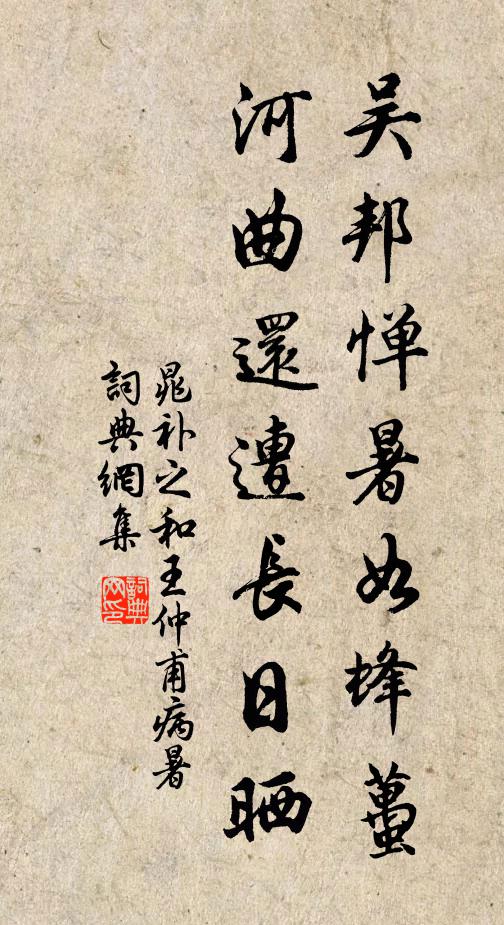 吴邦惮暑如蜂虿
河曲還遭長日晒
晁补之和王仲甫病暑
詞典網集
詞典網印